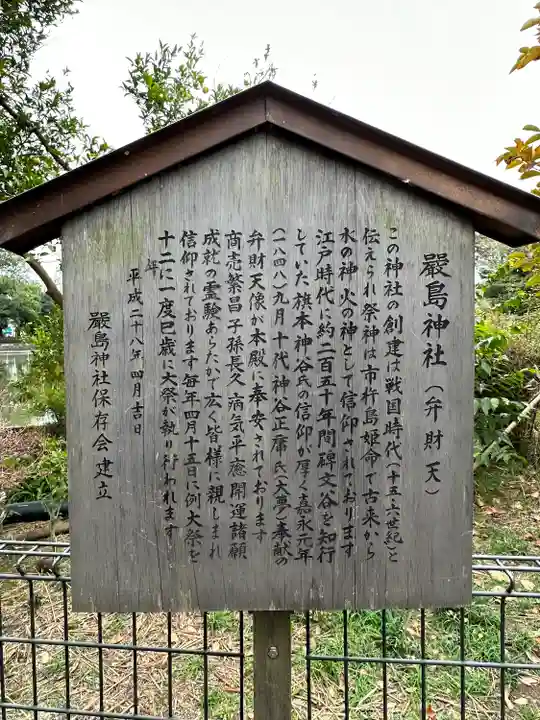 嚴島神社（弁財天）
この神社の創建は戦国時代（十五、六世紀）と
伝えられ祭神は市杵島姫命で古来から
水の神・火の神として信仰されております
江戸時代に約二百五十年間碑文谷を知行
していた旗本神谷氏の信仰が厚く嘉永元年
（一八四八）九月十代神谷正庸氏（大夢）奉献の
弁財天像が本殿に奉安されております
商売繁昌子孫長久病気平癒開運諸願
成就の霊験あらたかで広く皆様に親しまれ
信仰されております毎年四月十五日に例大祭を
十二年に一度巳歳に大祭が執り行われます
平成二十八年四月吉日
嚴島神社保存会建立